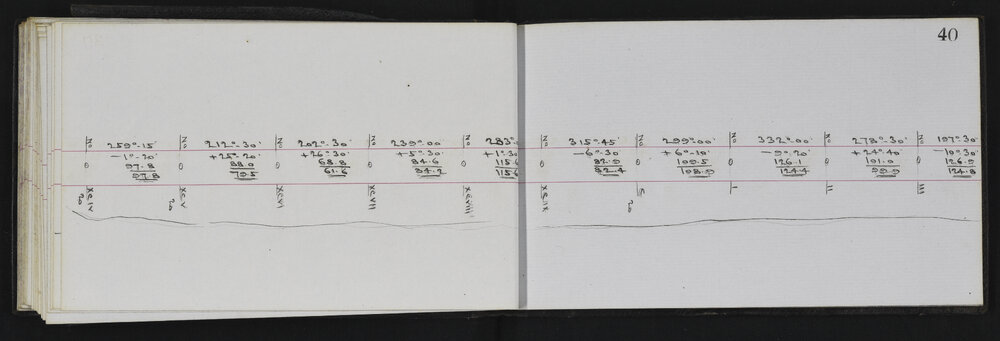 40
No 259°-15' No 212°-30' No 202°-30' No 239°-00' No 283°- No 315°-45' No 299°-00' No 332°-00' No 278°-30' No 197°-30'
-1°-20' +25°-20' +26°-30' +5°-30' +1°-30 -6°-30' +6°-10' -9°-20' +24°-40' -10°-30'
0 97.8 0 88.0 0 68.8 0 84.6 0 115.6 0 82.9 0 109.5 0 126.1 0 101.0 0 126.9
97.8 79.5 61.6 84.2 115.6 82.4 108.9 124.4 99.9 124.8
xciv xcv xcvi xcvii xcviii xcix c I II III
20 20 20